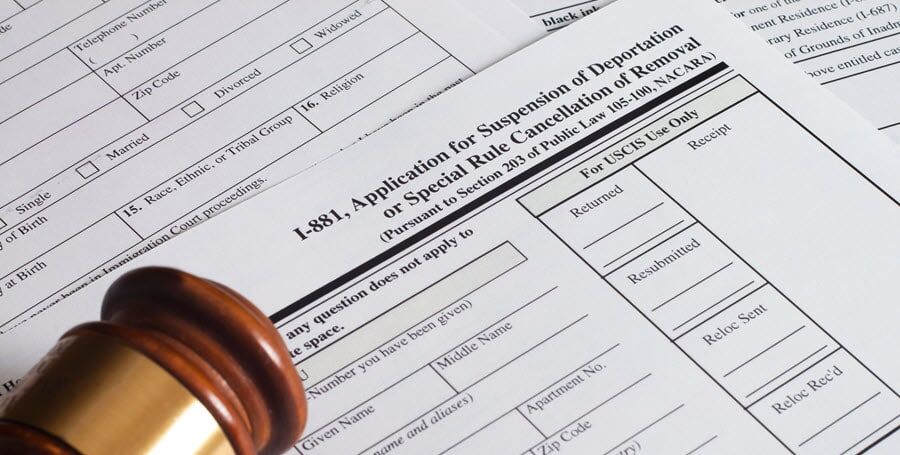 Telephone Number
( )
Apt. Number
Zip Code
Widowed
Divorced
Married
Single
16. Religion
15. Race, Ethnic, or Tribal Group
of Birth
at Birth
never been in Immigration Court proceedings.
black ink
for one of
nent Residence (I-
rary Residence (I-687)
of Grounds of Inadm
bove entitled cas
I-881, Application for Suspension of Deportation
or Special Rule Cancellation of Removal
(Pursuant to Section 203 of Public Law 105-100, NACARA)
any question does not apply to
te space.
Number you have been given)
Given Name
Middle Name
name and aliases)
Apartment No.
Zip Code
For USCIS Use Only
Returned
Receipt
Resubmitted
Reloc Sent
Reloc Rec'd